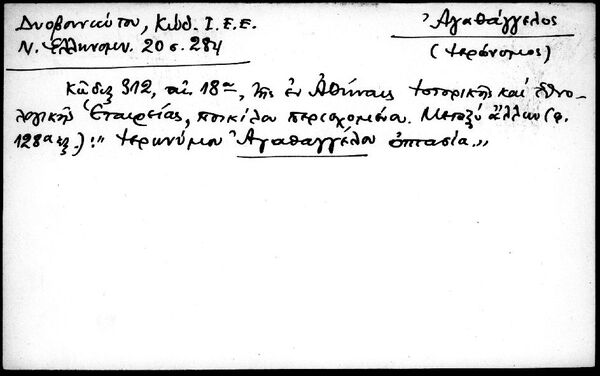 Δυοβουνιώτου, Κώδ. Ι.Ε.Ε.
Ν. Ἑλληνομν. 20 σ. 284
Ἀγαθάγγελος
(Ἱερώνυμος)
Κῶδιξ 312, αἰ. 18ος, τῆς ἐν Ἀθήναις Ἱστορικῆς καὶ Ἐθνο-
λογικῆς Ἑταιρείας, ποικίλου περιεχομένου. Μεταξὺ ἄλλων (φ.
128α ἑξ.): "Ἱερωνύμου Ἀγαθαγγέλου ὀπτασία."